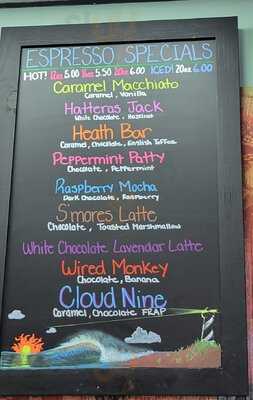 ESPRESSO SPECIALS
HOT! 12oz 5.00 16oz 5.50 20oz 6.00 ICED! 20oz 6.00
Caramel Macchiato
Caramel, Vanilla
Hatteras Jack
White Chocolate, Hazelnut
Heath Bar
Caramel, Chocolate, English Toffee
Peppermint Patty
Chocolate, Peppermint
Raspberry Mocha
Dark Chocolate, Raspberry
S'mores Latte
Chocolate, Toasted Marshmallow
White Chocolate Lavendar Latte
Wired Monkey
Chocolate, Banana
Cloud Nine
Caramel, Chocolate FRAP